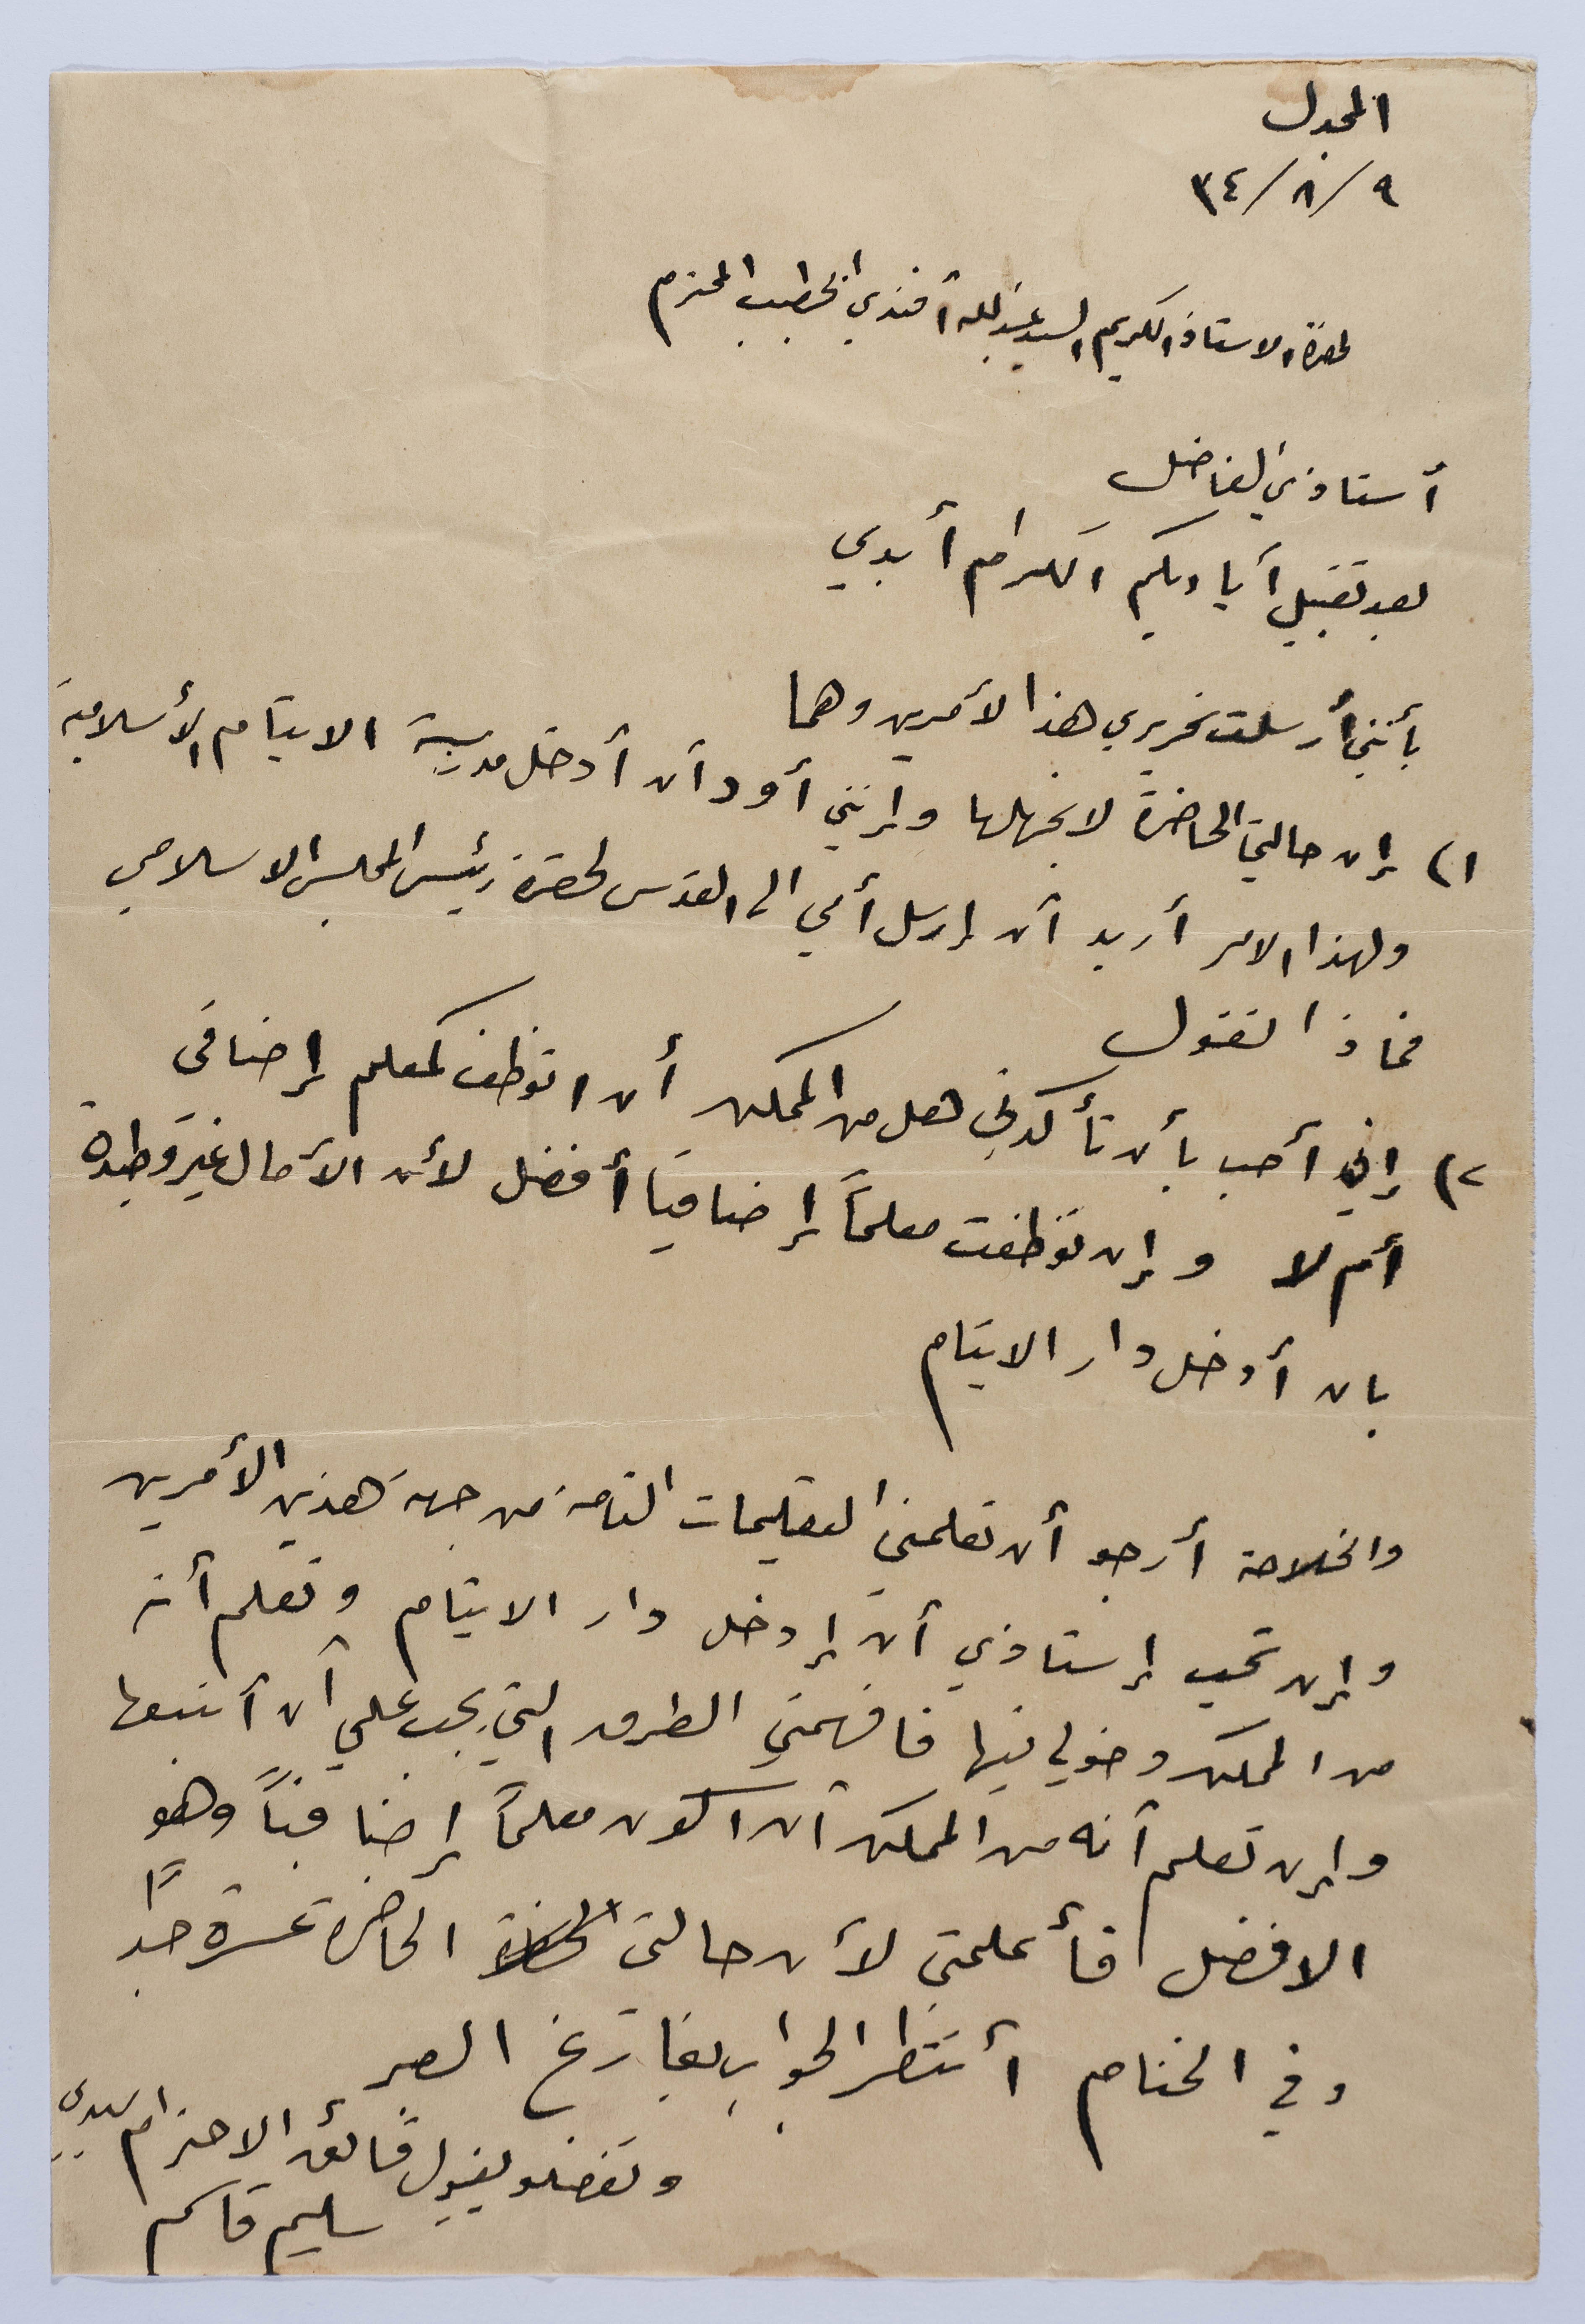 المجدل
٩/٨/٣٤
لحضرة الاستاذ الكريم السيد عبد الله أفندي الخطيب المحترم
أستاذي الفاضل
بعد تقبيل أياديكم الكرام أبدي
بأنني أرسلت تحريري هذا لأمرين وهما
١) إن حالتي الحاضرة لا تجهلها وإنني أود أن أدخل مدرسة الايتام الأسلامية
ولهذا الامر أريد أن إرسل أمي الى القدس لحضرة رئيس المجلس الاسلامي
فماذا تقول
٢) إني أحب بأن تأكد لي هل من الممكن أن اتوظف كمعلم إضافي
أم لا وإن توظفت معلماً إضافياً أفضل لأن الآمال غير وطيدة
بان أدخل دار الايتام
والخلاصة أرجو أن تعلمني التعليمات التامة من جهة هذين الأمرين
وإن تحب إستاذي أن إدخل دار الايتام وتعلم أنه
من الممكن دخولي فيها فافهمني الطرق التي يجب علي أن أتبعها
وإن تعلم أنه من الممكن أن اكون معلماً إضافياً وهو
الافضل فأعلمني لأن حالتي الحاضرة عسرة جداً
وفي الختام أنتظر الجواب بفارغ الصبر
وتفضلو بقبول فائق الاحترام سيدي
سليم قاسم